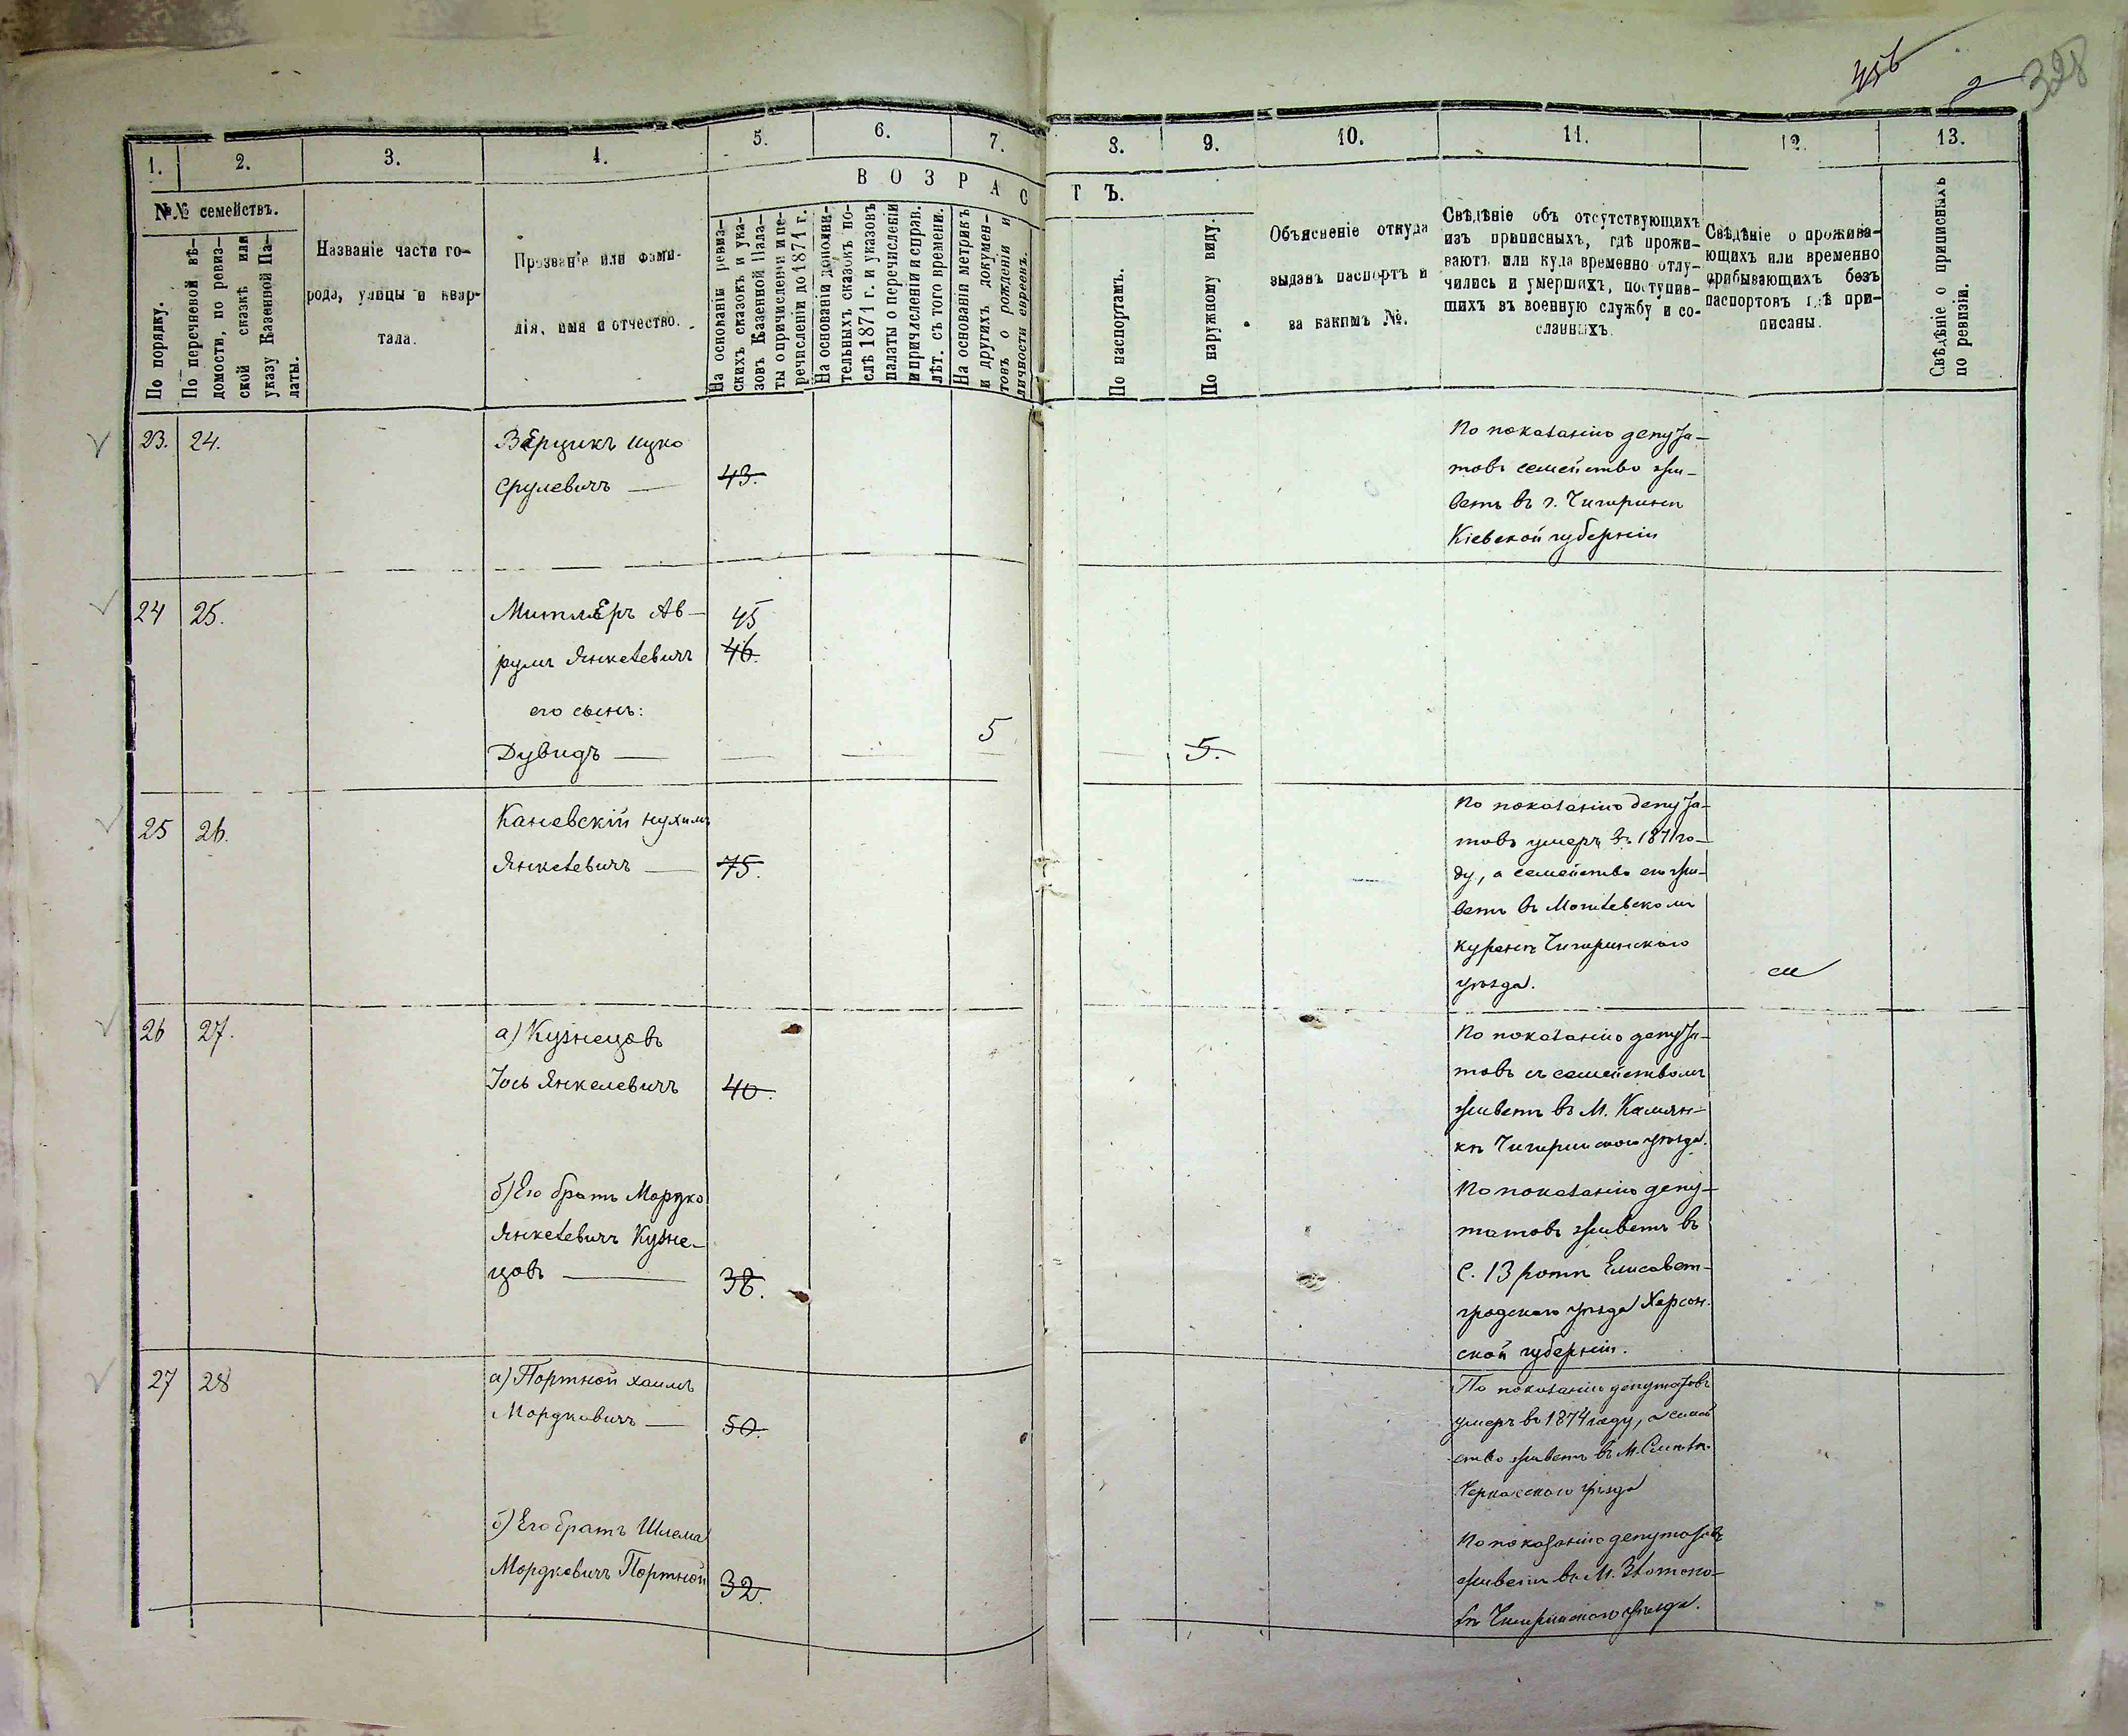 456
328
1.
2.
3.
4.
5.
6.
7.
8.
9.
10.
11.
12.
13.
№№ семействъ.
По порядку.
По перечневой вѣ-
домости, по ревиз-
ской сказкѣ или
указу Казенной Па-
латы.
Названіе части го-
рода, улицы и квар-
тала.
Прозваніе или фами-
лія, имя и отчество.
ВОЗРАСТЪ.
На основаніи ревиз-
скихъ сказокъ и ука-
зовъ Казенной Пала-
ты о причисленіи и пе-
речисленіи до 1871 г.
На основаніи дополни-
тельныхъ сказокъ по-
слѣ 1871 г. и указовъ
палаты о перечисленіи
и причисленіи и справ.
лѣт. съ того времени.
На основаніи метрикъ
и другихъ докумен-
товъ о рожденіи и
личности евреевъ.
По паспортамъ.
По наружному виду.
Объясненіе откуда
выданъ паспортъ и
за какимъ №.
Свѣдѣніе объ отсутствующихъ
изъ приписныхъ, гдѣ прожи-
ваютъ или куда временно отлу-
чились и умершихъ, поступив-
шихъ въ военную службу и со-
сланныхъ.
Свѣдѣніе о прожива-
ющихъ или временно
прибывающихъ безъ
паспортовъ гдѣ при-
писаны.
Свѣдѣніе о приписныхъ
по ревизіи.
23. 24.
Вэрцикъ Ицко
Срулевичъ — 43.
По показанію депута-
товъ семейство жи-
ветъ въ г. Чигиринѣ
Кіевской губерніи
24 25.
Митлэръ Ав- 45
румъ Янкелевичъ 46.
его сынъ:
Дувидъ — 5 5.
25 26.
Каневскій Нухимъ
Янкелевичъ — 75.
По показанію депута-
товъ умеръ въ 1871 го-
ду, а семейство его жи-
ветъ въ Могилевскомъ
куренѣ Чигиринскаго
уѣзда.
26 27.
а) Кузнецовъ
Іось Янкелевичъ 40.
По показанію депута-
товъ съ семействомъ
живетъ въ м. Камян-
кѣ Чигиринскаго уѣзда.
б) Его братъ Мордко
Янкелевичъ Кузне-
цовъ — 38.
По показанію депу-
татовъ живетъ въ
с. 13 ротѣ Елисавет-
градскаго уѣзда Херсон-
ской губерніи.
27 28
а) Портной Хаимъ
Мордковичъ — 50.
По показанію депутатовъ
умеръ въ 1874 году, а семей
ство живетъ въ м.
Черкасскаго уѣзда
б) Его братъ Шлема
Мордковичъ Портной 32.
По показанію депутатовъ
живетъ въ м. Златопо-
лѣ Чигиринскаго уѣзда.